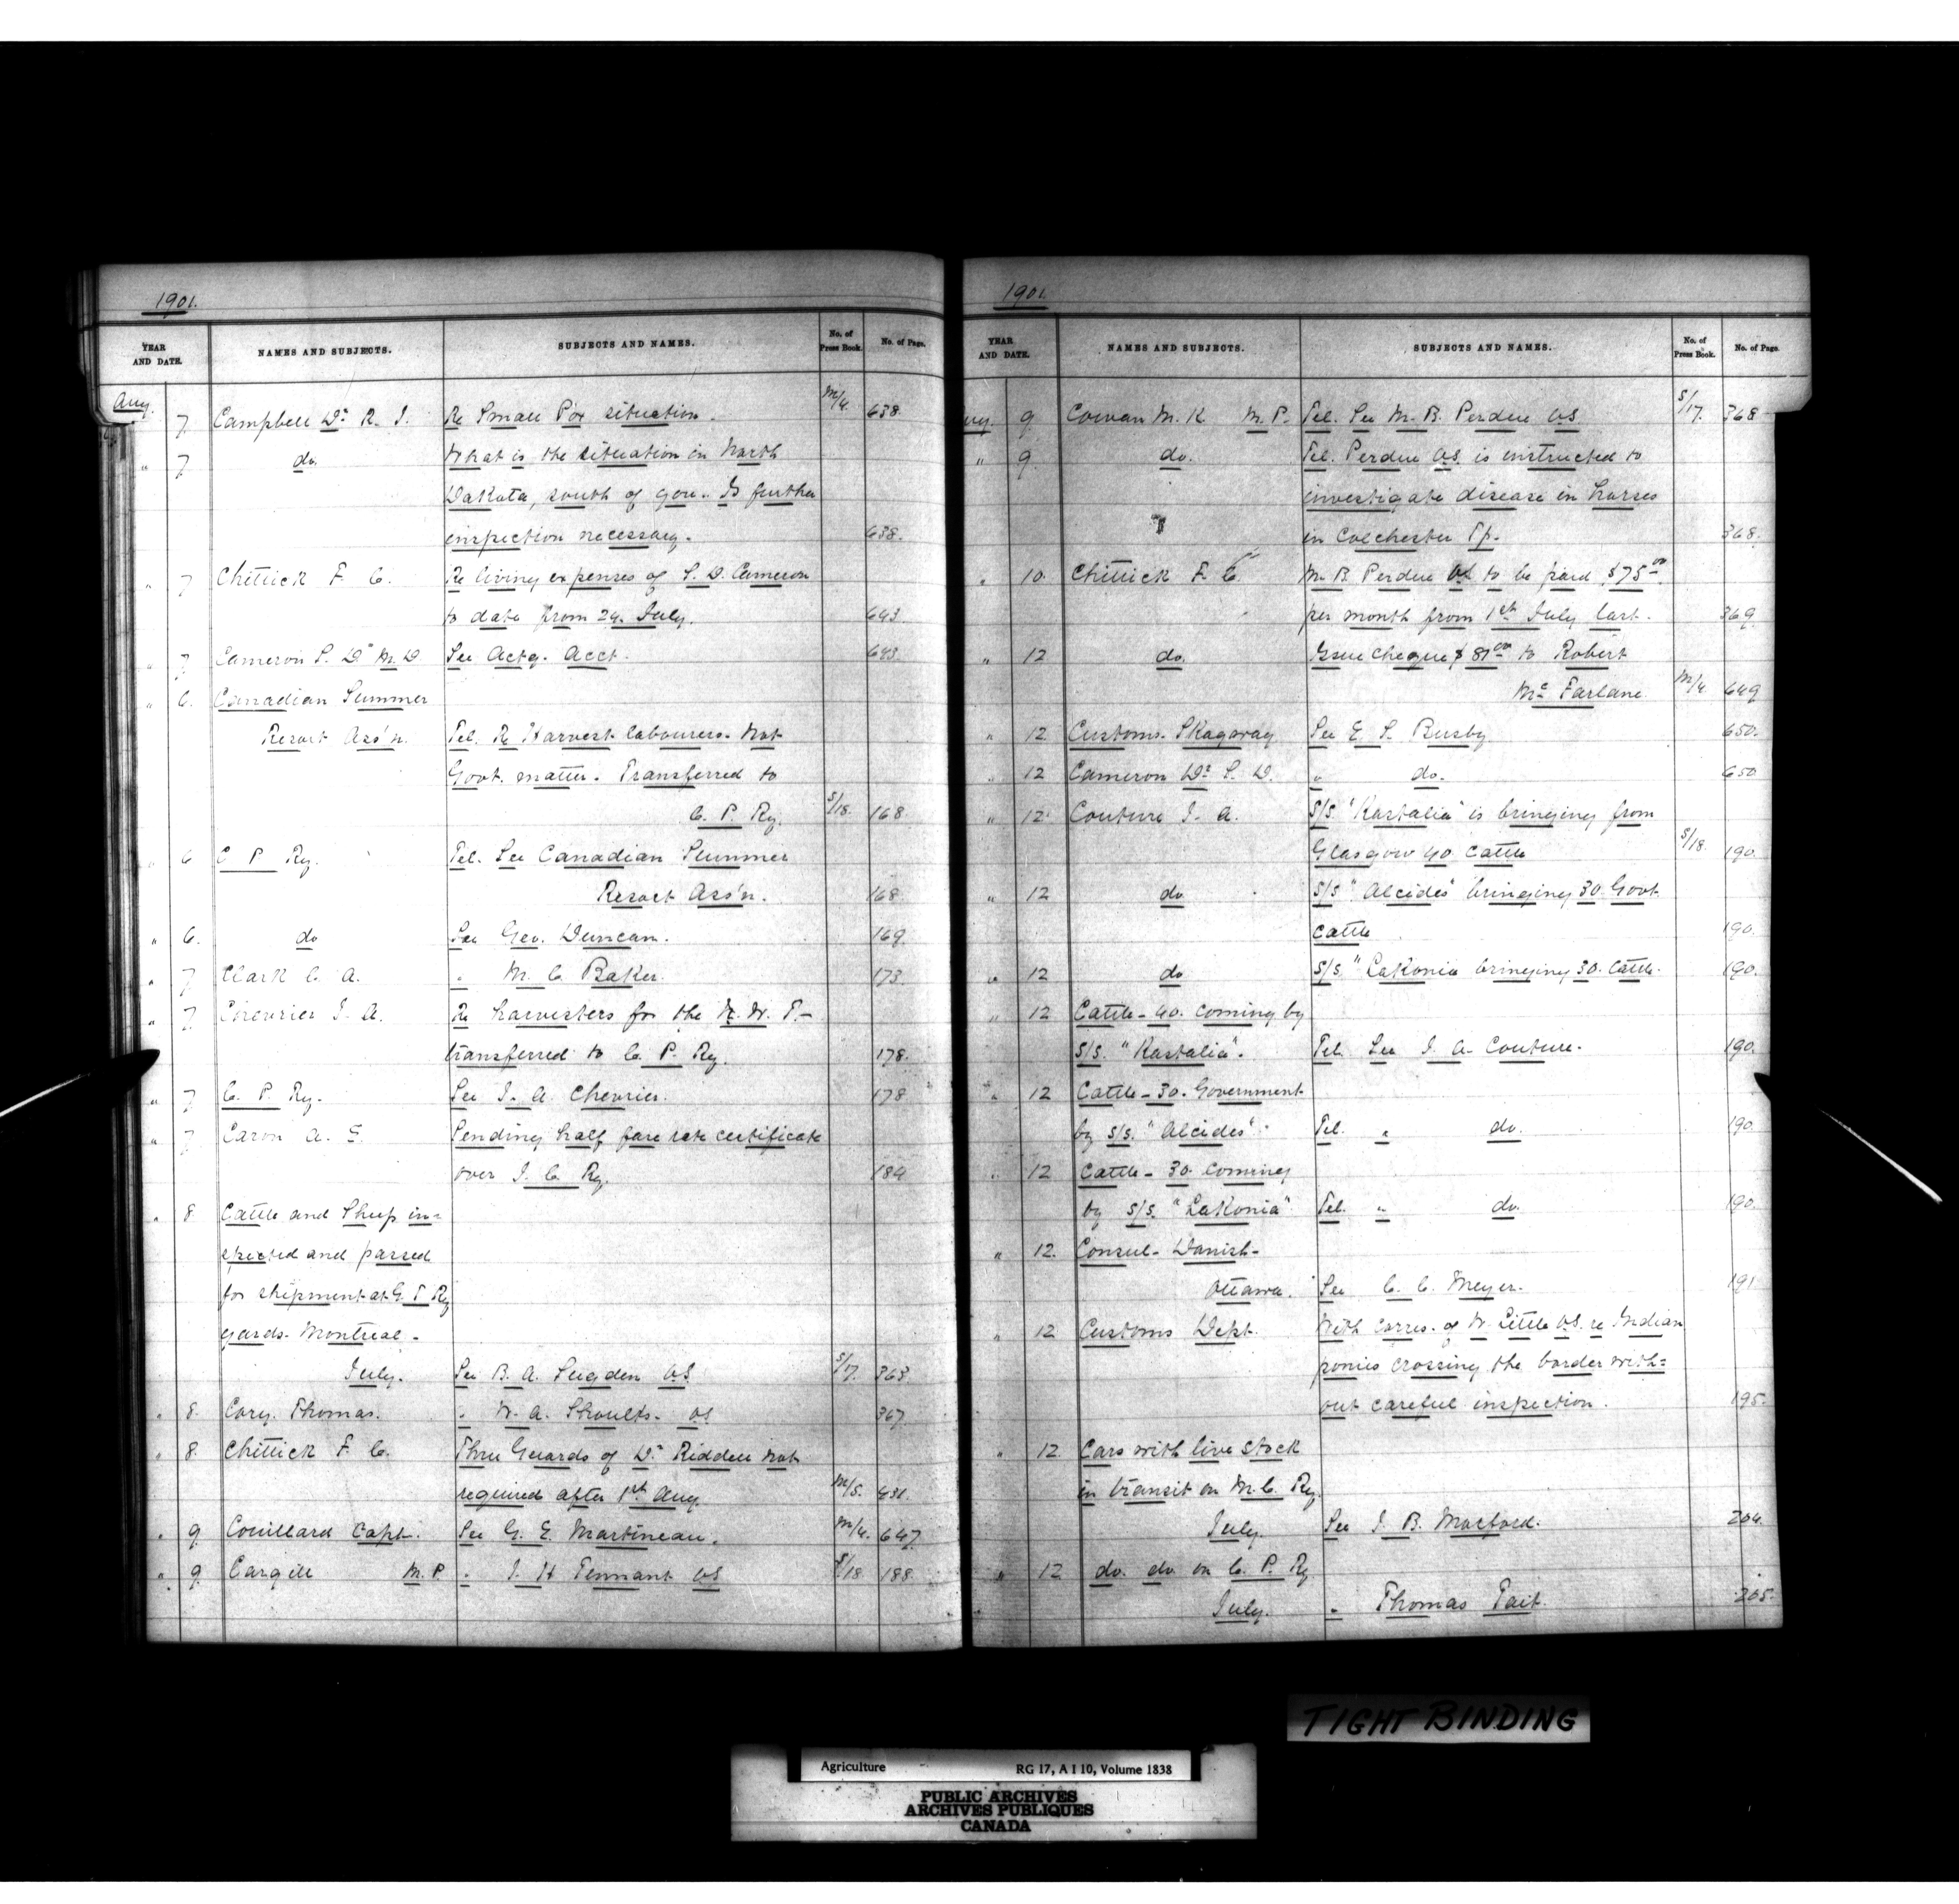 1901.
YEAR AND DATE. NAMES AND SUBJECTS. SUBJECTS AND NAMES. No. of Press Book. No. of Page.
Aug. 7. Campbell Dr. R. I. Re Small Pox situation. M/4. 638.
" 7 do. What is the situation in North
Dakota, south of you. Is further
inspection necessary. 638.
" 7 Chittick F. C. Re living expenses of S. D. Cameron
to date from 24. July. 643.
" 7 Cameron S. D. M. D See Actg. Acct. 643.
" 6. Canadian Summer
Resort Ass'n. Tel. Re Harvest labourers. Not
Govt. matter. Transferred to
C. P. Ry. S/18. 168.
" 6 C P Ry. Tel. See Canadian Summer
Resort Ass'n. 168
" 6. do See Geo. Duncan. 169.
" 7 Clark C. A. " M. C. Baker. 173.
" 7. Chevrier I. A. Re harvesters for the N. W. T.-
transferred to C. P. Ry. 178.
" 7 C. P. Ry. See I. A. Chevrier. 178
" 7 Caron A. E. Sending half fare rate certificate
over I. C. Ry. 184
" 8 Cattle and Sheep in=
spected and passed
for shipment at G. T Ry
yards- Montreal-
July. See B. A. Sugden V.S. S/17. 363.
" 8. Cory. Thomas. " W. A. Shoults. VS 367
" 8. Chittick F. C. Three Guards of Dr. Riddell not
required after 1st Aug. M/5. 431.
" 9 Couillard Capt. See G. E. Martineau. M/4. 647.
" 9. Cargill M. P. " J. H Tennant VS S/18. 188.
1901.
YEAR AND DATE. NAMES AND SUBJECTS. SUBJECTS AND NAMES. No. of Press Book. No. of Page.
9 Cowan M. K. M. P. Tel. See M. B. Perdue VS. S/17. 368
" 9 do. Tel. Perdue VS. is instructed to
investigate disease in horses
in Colchester Tp. 368.
" 10. Chittick F. C. M. B. Perdue VS to be paid $75 00
per month from 1st July last. 369
" 12 do. Issue cheque $ 87 00 to Robert
Mc Farlane. M/4. 649
" 12 Customs. Skagway See E. S. Busby 650.
" 12 Cameron Dr. S. D. " do. 650
" 12 Couture J. A. S/S. "Kastalia" is bringing from
Glasgow 40 cattle S/18. 190.
" 12 do S/S "Alcides" bringing 30 Govt.
cattle 190.
" 12 do S/S. "Lakonia bringing 30. Cattle. 190.
" 12 Cattle - 40. coming by
S/S. "Kastalia". Tel. See J. A. Couture. 190.
" 12 Cattle - 30. Government
by S/S. "Alcides". Tel. " do. 190.
" 12 Cattle - 30 coming
by S/S. "Lakonia" Tel. " do. 190.
" 12. Consul- Danish-
Ottawa. See C. C. Meyer. 191
" 12 Customs Dept. With corres. of W. Little VS. re Indian
ponies crossing the border with=
out careful inspection. 195.
" 12 Cars with live stock
in transit on M. C. Ry.
July. See J. B. Morford. 204.
" 12 do. do. on C. P. Ry
July. " Thomas Tait. 205.
TIGHT BINDING
Agriculture RG 17, A I 10, Volume 1838
PUBLIC ARCHIVES
ARCHIVES PUBLIQUES
CANADA